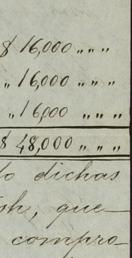 $ 16,000 „ „ „
„ 16,000 „ „ „
„ 16,000 „ „ „
$ 48,000 „ „ „
dichas
que
compro